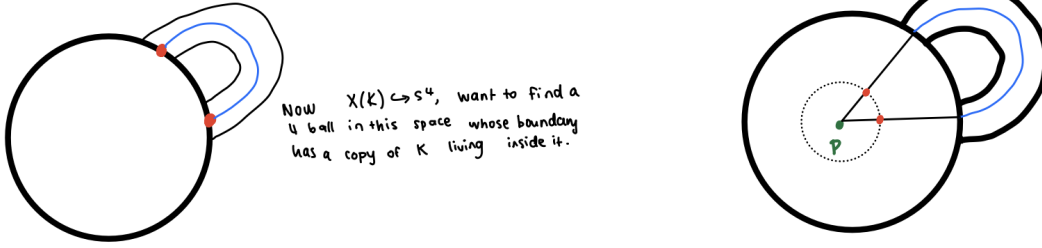 Now X(K) ↪ S⁴, want to find a
4 ball in this space whose boundary
has a copy of K living inside it.
P